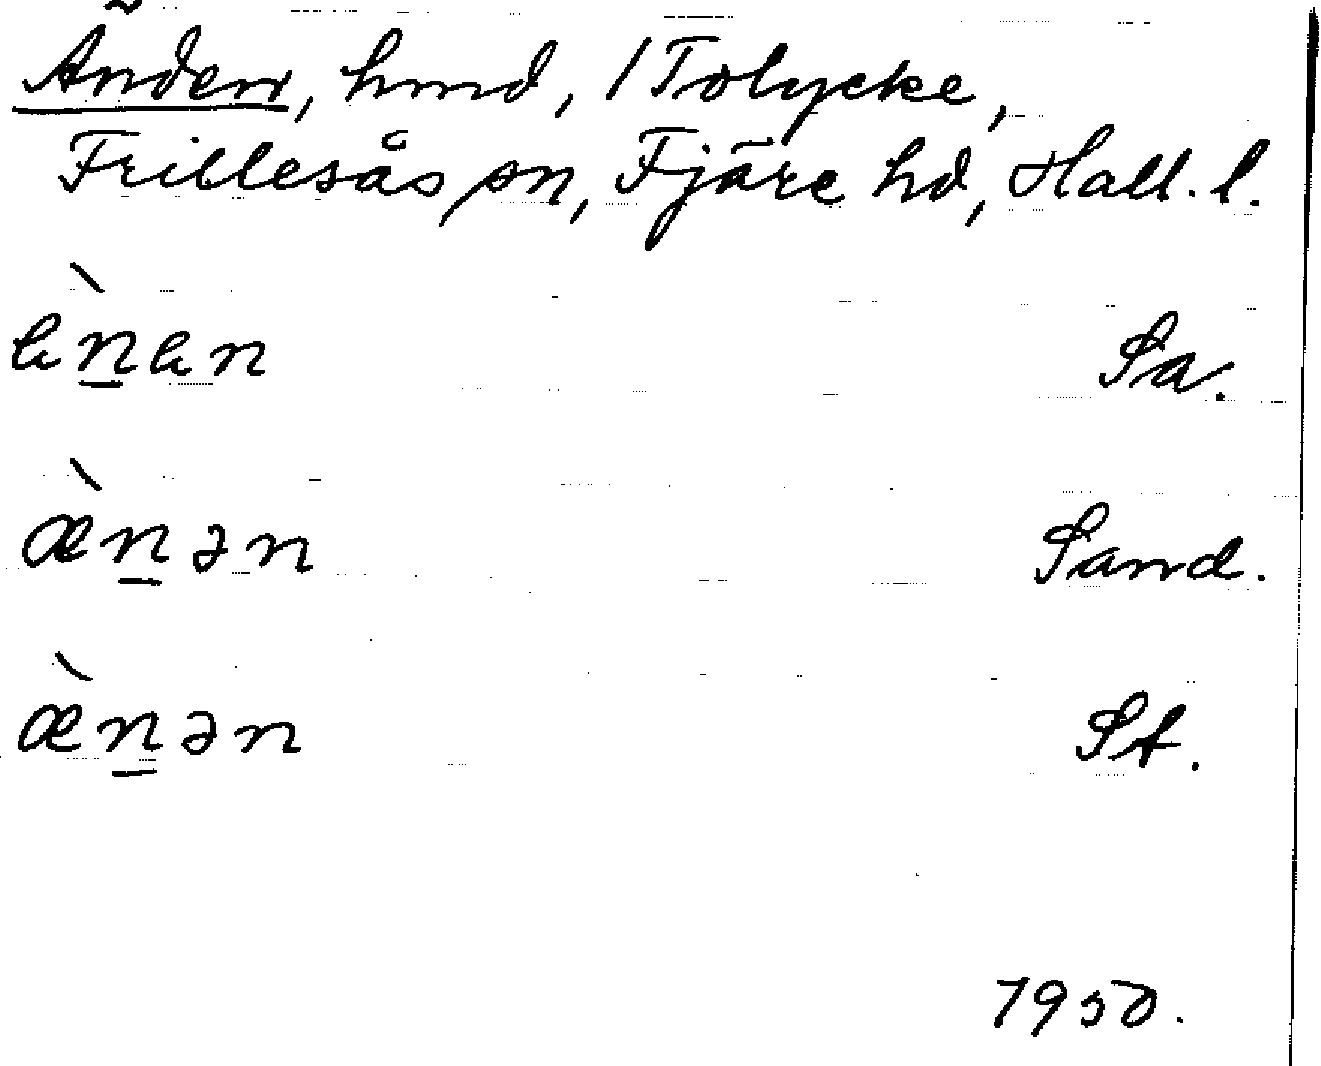 Änden, hmd, 1 Tolycke,
Frillesås sn, Fjäre hd, Hall. l.
Sa.
æ̀n̲ən Sand.
æ̀n̲ən St.
1950.